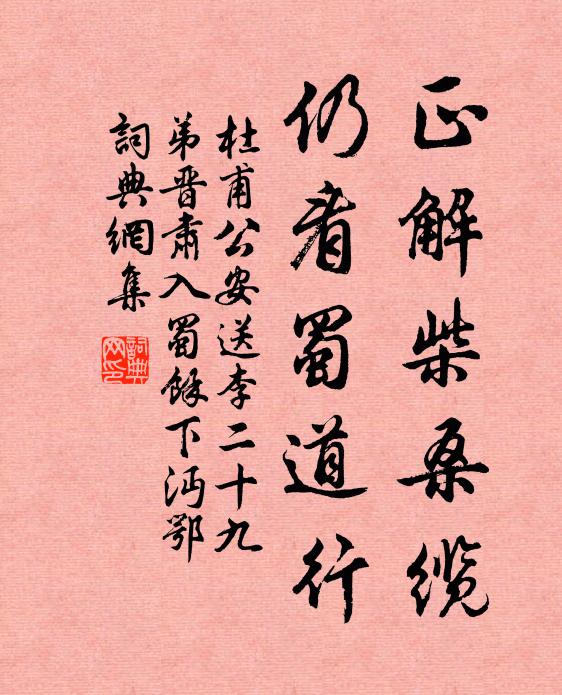 正解柴桑缆
仍看蜀道行
杜甫公安送李二十九
弟晋肃入蜀餘下沔鄂
詞典網集
詞典网印